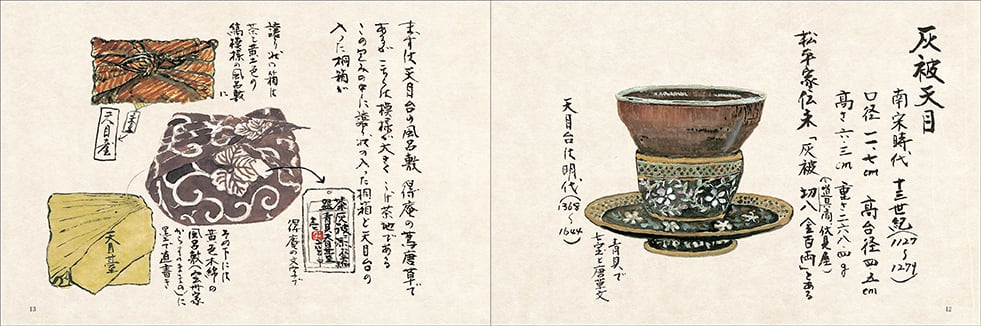 灰被天目
南宋時代 十三世紀(1127〜1279)
口径 一一・七cm 高台径 四・五cm
高さ 六・三cm 重さ 二六八・四g
松平家伝来「灰被 切八 金百両」とある
(道具商 伏見屋)
天目台は明代(1368〜1644)
青貝で
七宝と唐草文
12
まずは天目台の風呂敷 得庵の蔦唐草で
あるが こちらは模様が大きく こげ茶地である
この包みの中に譲り状の入った桐箱と天目台の
入った桐箱が
譲り状の箱は
茶と黄土色の
縞模様の風呂敷に
天目臺
天目臺
得庵の文字で
その下には
黄土木綿の
風呂敷
墨で直書き
13